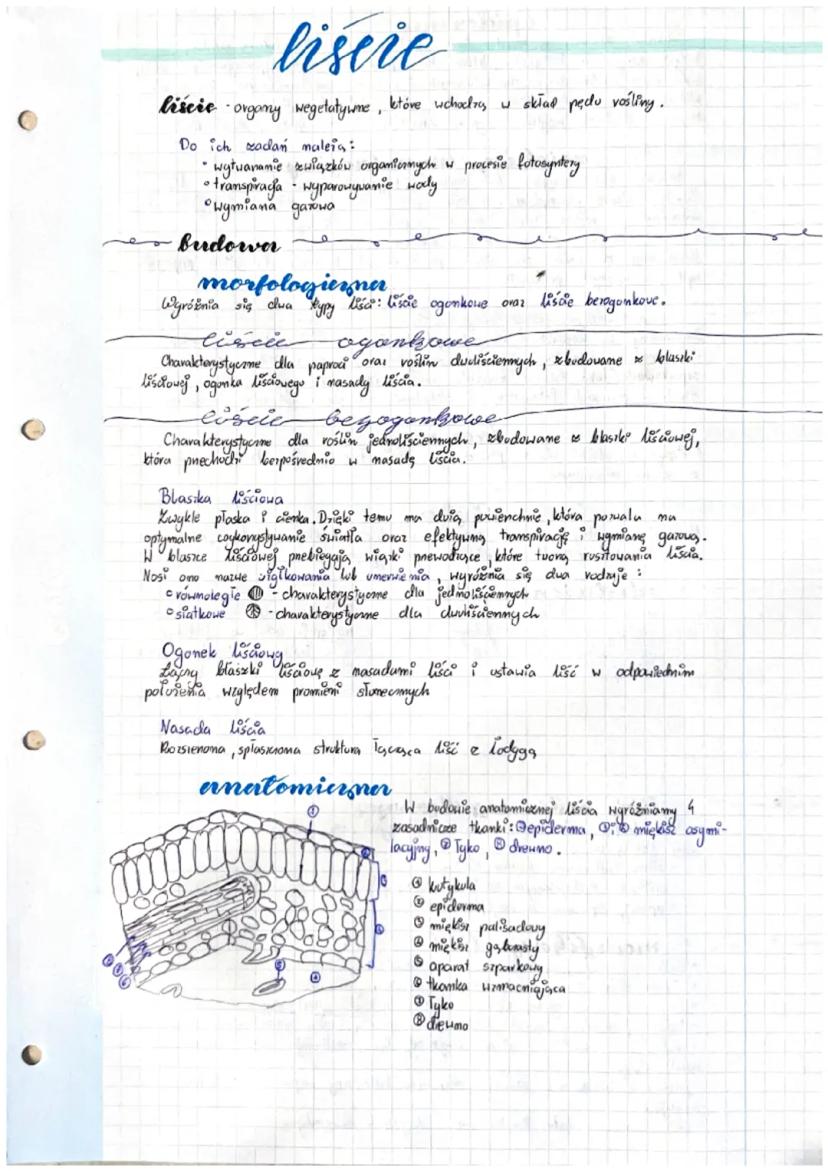 liście
liście - organy wegetatywne, które wchodzą w skład pędu rośliny.
Do ich zadań należą:
• wytwarzanie związków organicznych w procesie fotosyntezy
• transpiracja - wyparowywanie wody
• wymiana gazowa
budowa
morfologiczna
Wyróżnia się dwa typy liści: liście ogonkowe oraz liście bezogonkowe.
liście ogonkowe
Charakterystyczne dla paproci oraz roślin dwuliściennych, zbudowane z blaszki
liściowej, ogonka liściowego i nasady liścia.
liście bezogonkowe
Charakterystyczne dla roślin jednoliściennych, zbudowane z blaszki liściowej,
która przechodzi bezpośrednio w nasadę liścia.
Blaszka liściowa
Zwykle płaska i cienka. Dzięki temu ma dużą powierzchnię, która pozwala na
optymalne wykorzystywanie światła oraz efektywną transpirację i wymianę gazową.
W blaszce liściowej przebiegają wiązki przewodzące, które tworzą rusztowania liścia.
Nosi ono nazwę użyłkowania lub unerwienia, wyróżnia się dwa rodzaje:
• równoległe - charakterystyczne dla jednoliściennych
• siatkowe - charakterystyczne dla dwuliściennych
Ogonek liściowy
Łączy blaszki liściową z nasadami liści i ustawia liść w odpowiednim
położenia względem promieni słonecznych
Nasada liścia
Rozszerzona, spłaszczona struktura łącząca liść z łodygą
anatomiczna
W budowie anatomicznej liścia wyróżniamy 4
zasadnicze tkanki: ② epiderma, ③, ④ miękisz asymi-
lacyjny, ⑦ łyko, ⑧ drewno.
① kutykula
② epiderma
③ miękisz palisadowy
④ miękisz gąbczasty
⑤ aparat szparkowy
⑥ tkanka wzmacniająca
⑦ łyko
⑧ drewno